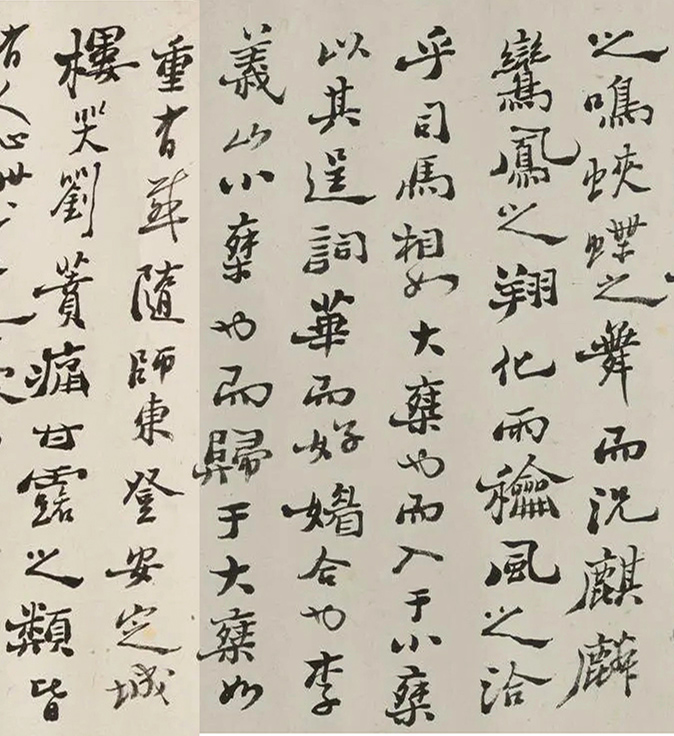 之鳴蛺蝶之舞而况麒麟
鸞鳳之翔化雨龢風之洽
乎司馬相如大椉也而入于小椉
以其逞詞華而好媚合也李
義山小椉也而歸于大椉如
重有感隨師東登安定城
樓哭劉蕡痛甘露之類皆
有人心世